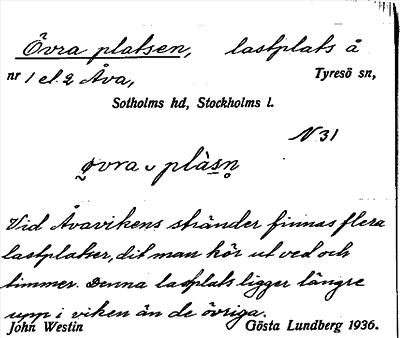 Övra platsen, lastplats å
nr 1 el. 2 Åva, Tyresö sn,
Sotholms hd, Stockholms l.
N 31
øvra plàsn̥
Vid Åvavikens stränder finnas flera
lastplatser, dit man kör ut ved och
timmer. Denna lastplats ligger längre
upp i viken än de övriga.
John Westin Gösta Lundberg 1936.